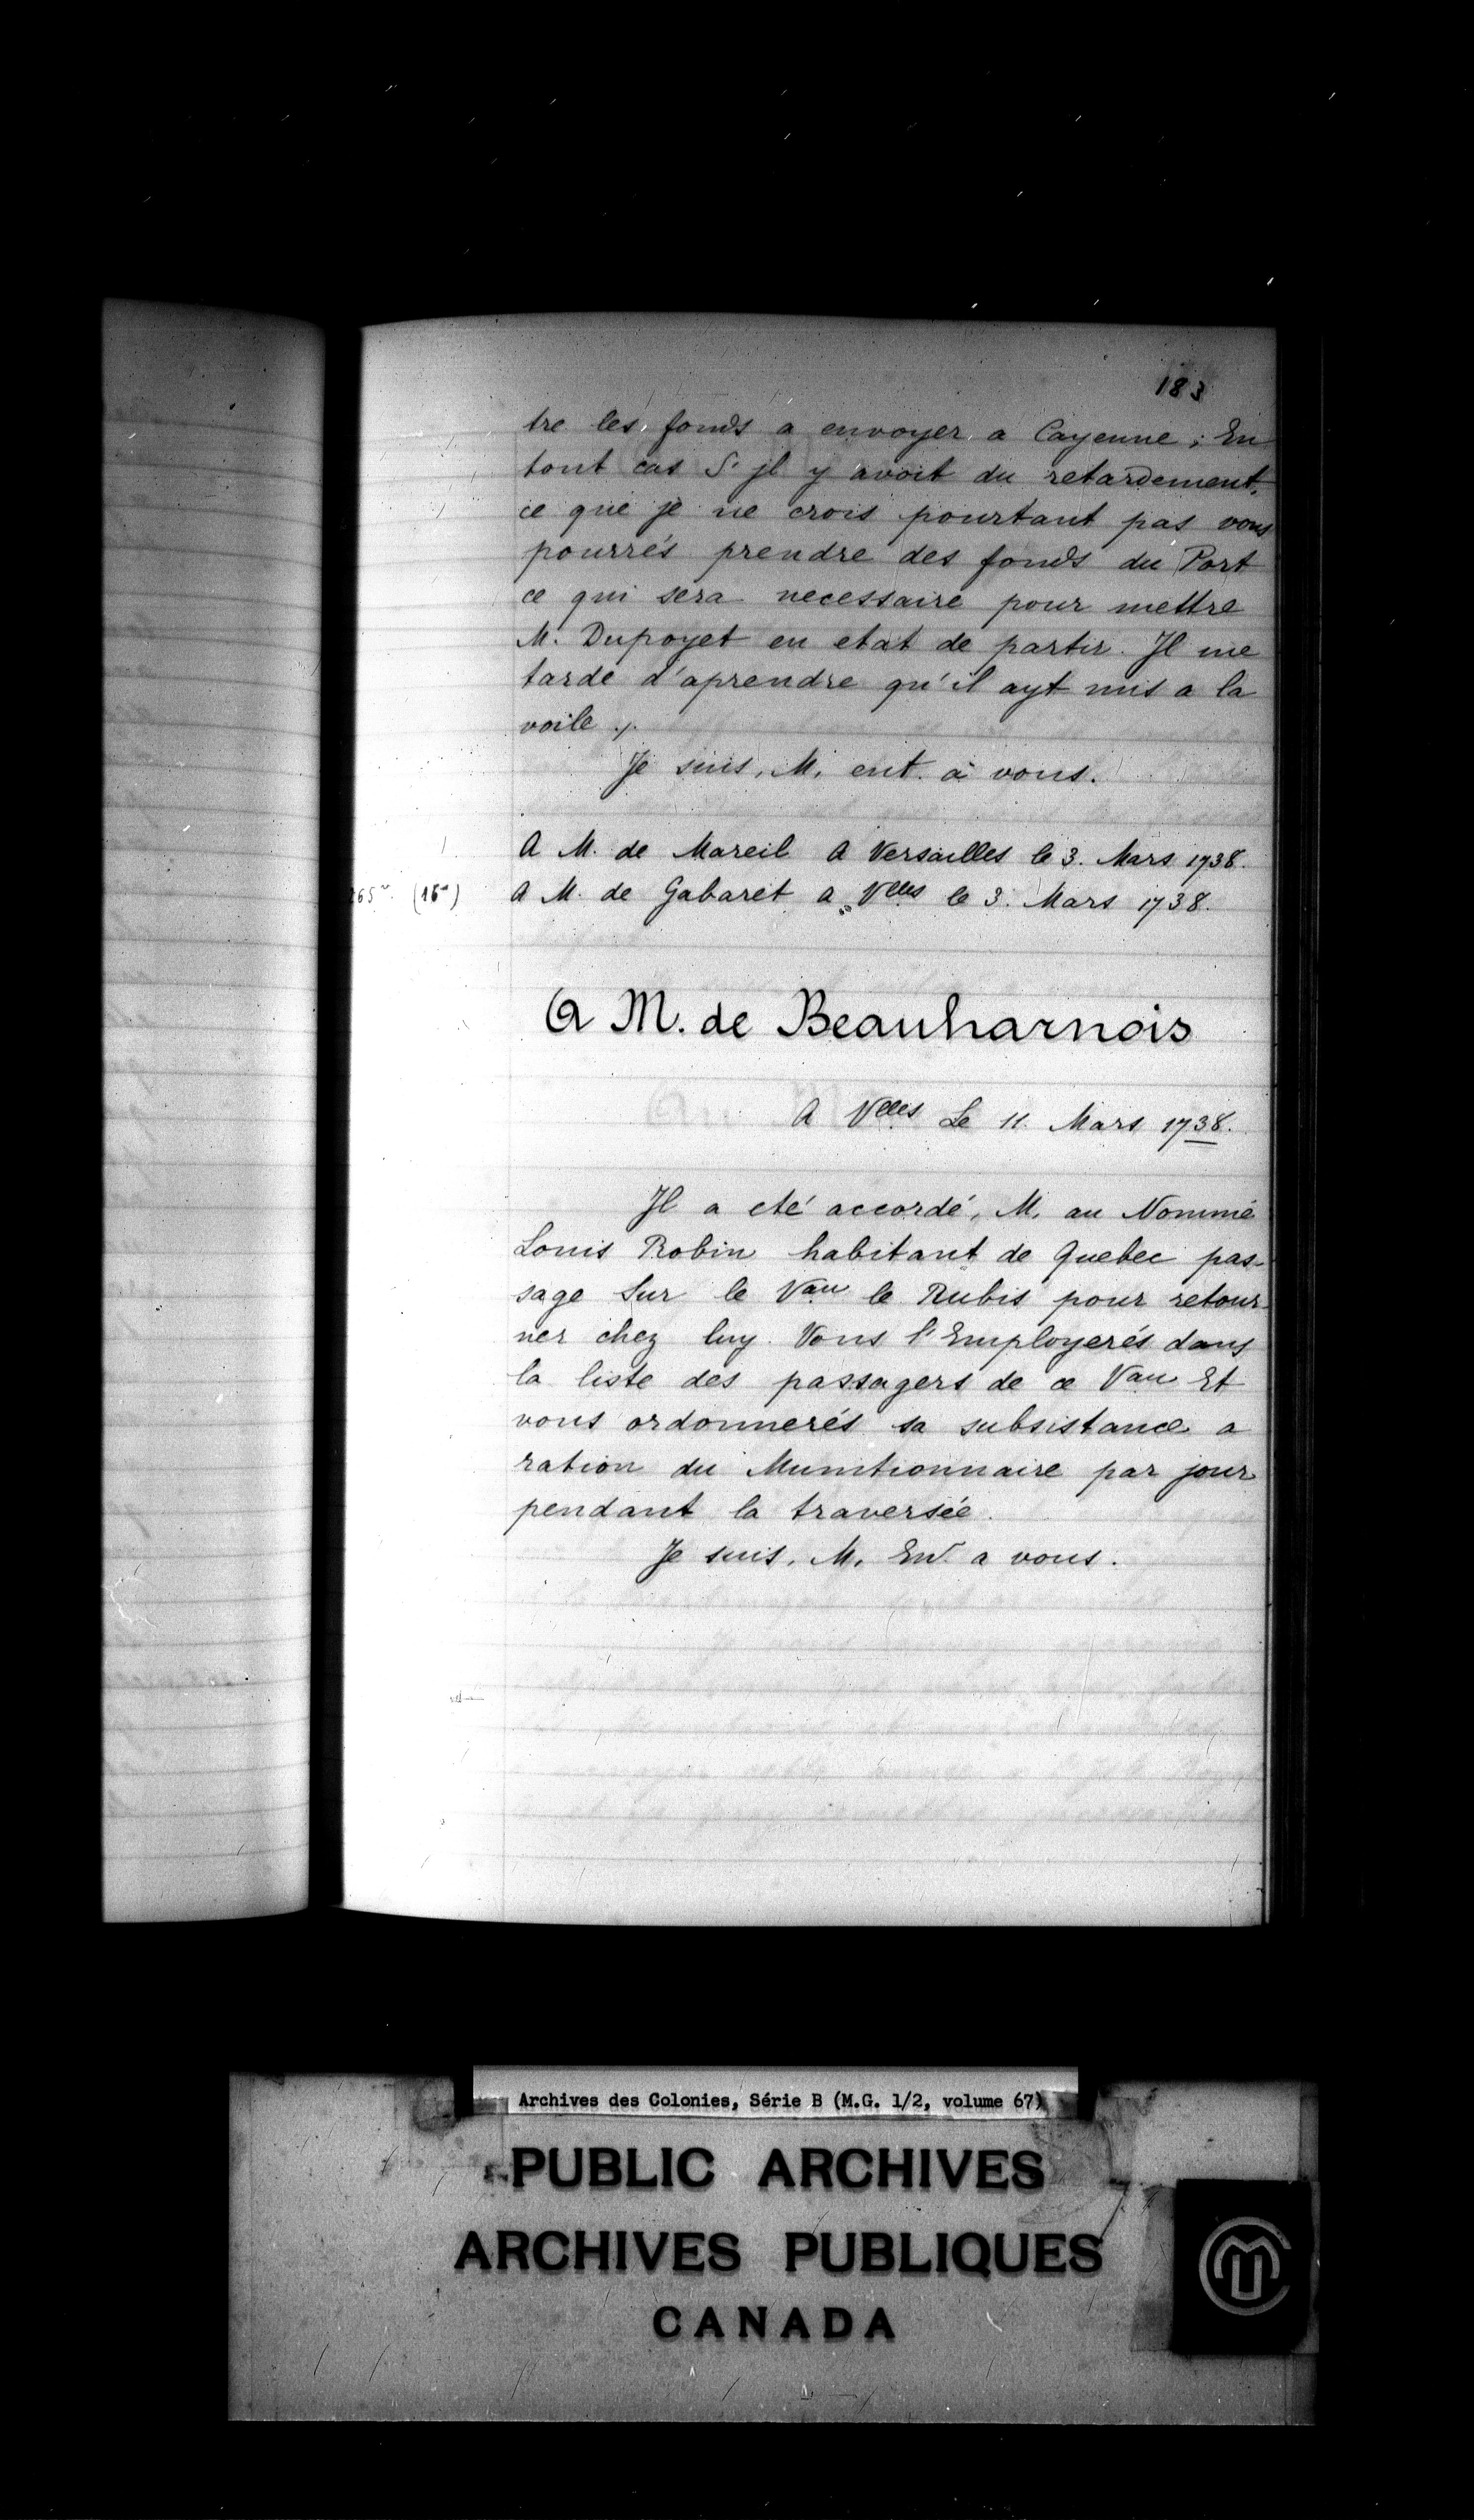 183
tre les fonds a envoyer a Cayenne ; En
tout cas S'jl y avoit du retardement,
ce que je ne crois pourtant pas vous
pourrés prendre des fonds du Port
ce qui sera necessaire pour mettre
M. Dupoyet en etat de partir. Jl me
tarde d'aprendre qu'il ayt mis a la
voile ./.
Je suis, M. ent. à vous.
A M. de Mareil A Versailles le 3. Mars 1738.
A M. de Gabaret a Vlles le 3. Mars 1738.
A M. de Beauharnois
A Vlles Le 11. Mars 1738.
Jl a eté accordé, M. au Nommé
Louis Robin habitant de Quebec pas-
sage Sur le Vau le Rubis pour retour-
ner chez luy. Vous l'Employerés dans
la liste des passagers de ce Vau Et
vous ordonnerés sa subsistance a
ration du Munitionnaire par jour
pendant la traversée.
Je suis, M. Ent. a vous.
Archives des Colonies, Série B (M.G. 1/2, volume 67)
PUBLIC ARCHIVES
ARCHIVES PUBLIQUES
CANADA